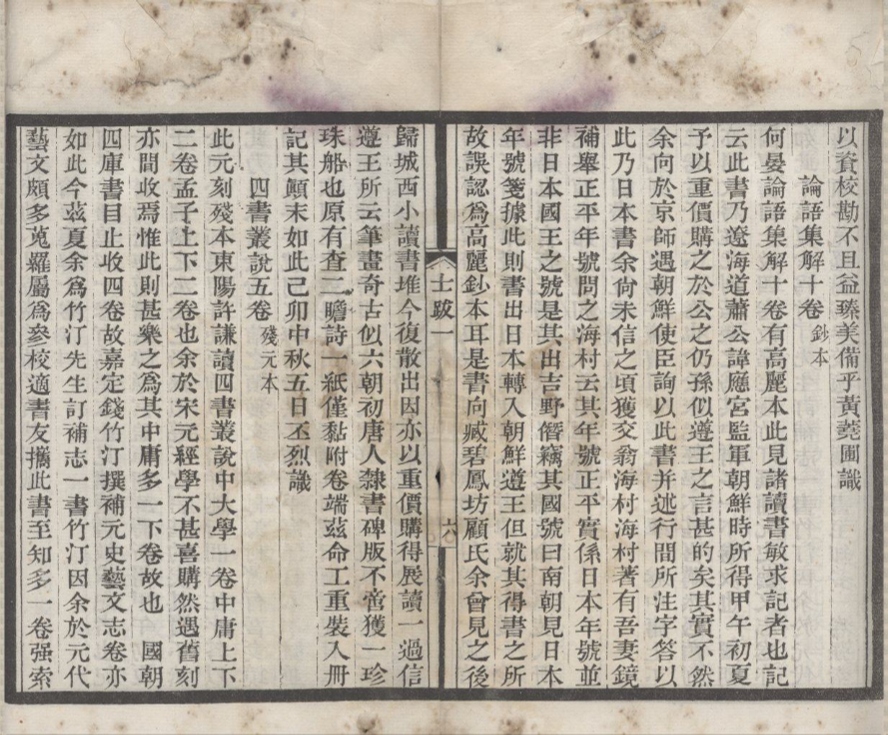 以資校勘不且益臻美備乎黃蕘圃識
論語集解十卷鈔本
何晏論語集解十卷有高麗本此見諸讀書敏求記者也記
云此書乃遼海道蕭公諱應宮監軍朝鮮時所得甲午初夏
予以重價購之於公之仍孫似遵王之言甚的矣其實不然
余向於京師遇朝鮮使臣詢以此書并述行間所注字答以
此乃日本書余尙未信之頃獲交翁海村海村著有吾妻鏡
補舉正平年號問之海村云其年號正平實係日本年號並
非日本國王之號是其出吉野僭竊其國號曰南朝見日本
年號箋據此則書出日本轉入朝鮮遵王但就其得書之所
故誤認爲高麗鈔本耳是書向臧碧鳳坊顧氏余曾見之後
士跋一
六
歸城西小讀書堆今復散出因亦以重價購得展讀一過信
遵王所云筆畫奇古似六朝初唐人隸書碑版不啻獲一珍
珠船也原有查二瞻詩一紙僅黏附卷端茲命工重裝入冊
記其顚末如此己卯中秋五日丕烈識
四書叢說五卷殘元本
此元刻殘本東陽許謙讀四書叢說中大學一卷中庸上下
二卷孟子上下二卷也余於宋元經學不甚喜購然遇舊刻
亦間收焉惟此則甚樂之爲其中庸多一下卷故也　國朝
四庫書目止收四卷故嘉定錢竹汀撰補元史藝文志卷亦
如此今茲夏余爲竹汀先生訂補志一書竹汀因余於元代
藝文頗多蒐羅屬爲參校適書友攜此書至知多一卷强索